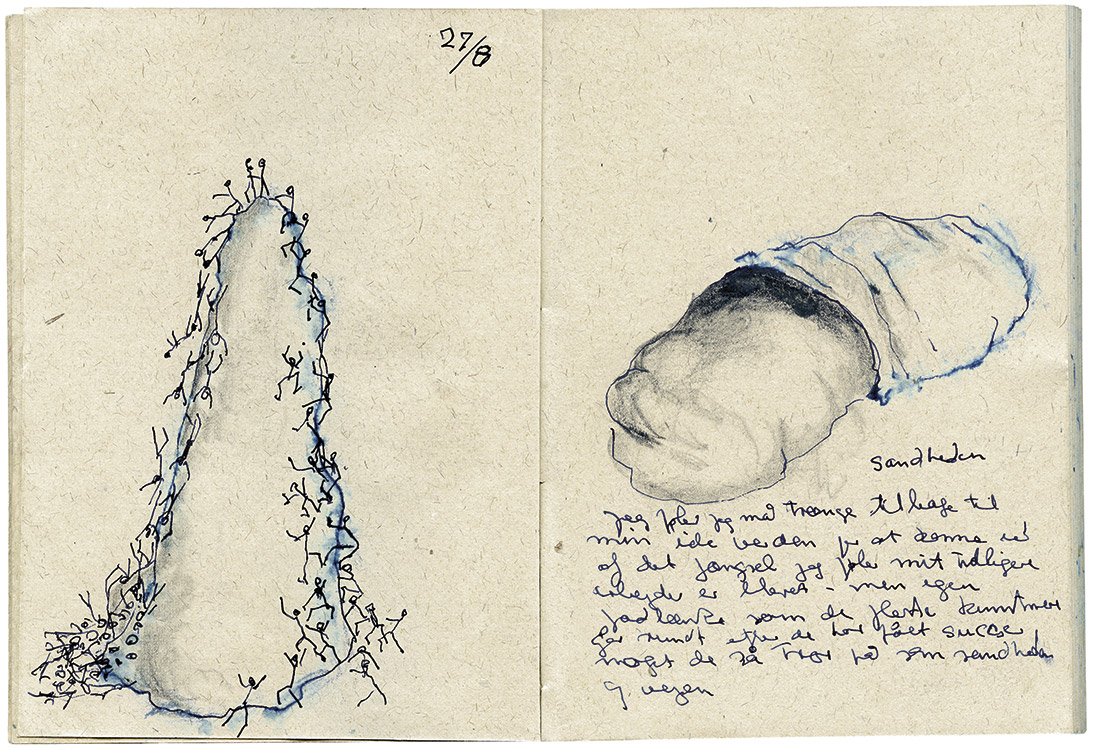 27/8
sandheden
jeg føler jeg må trænge tilbage til
min ide verden for at komme ud
af det fængsel jeg føler mit tidligere
arbejde er blevet - men egen
som de fleste kunstnere
går rundt efter de har fået succes
noget de så tror på som sandheden
og vejen